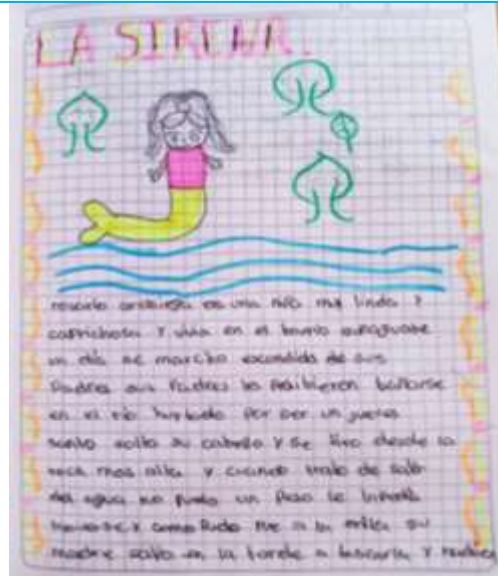 LA SIRENA.
es una niña muy linda Y
caprichosa Y vivia en el barrio
un día se marcho escondida de sus
Padres sus Padres le Prohibieron bañarse
en el río Por ser un jueves
santo solto su cabello Y se tiro desde la
roca mas alta Y cuando trato de salir
del agua no Pudo un Peso le
moverse Y como Pudo a la orilla su
madre salio en la tarde a buscarla Y